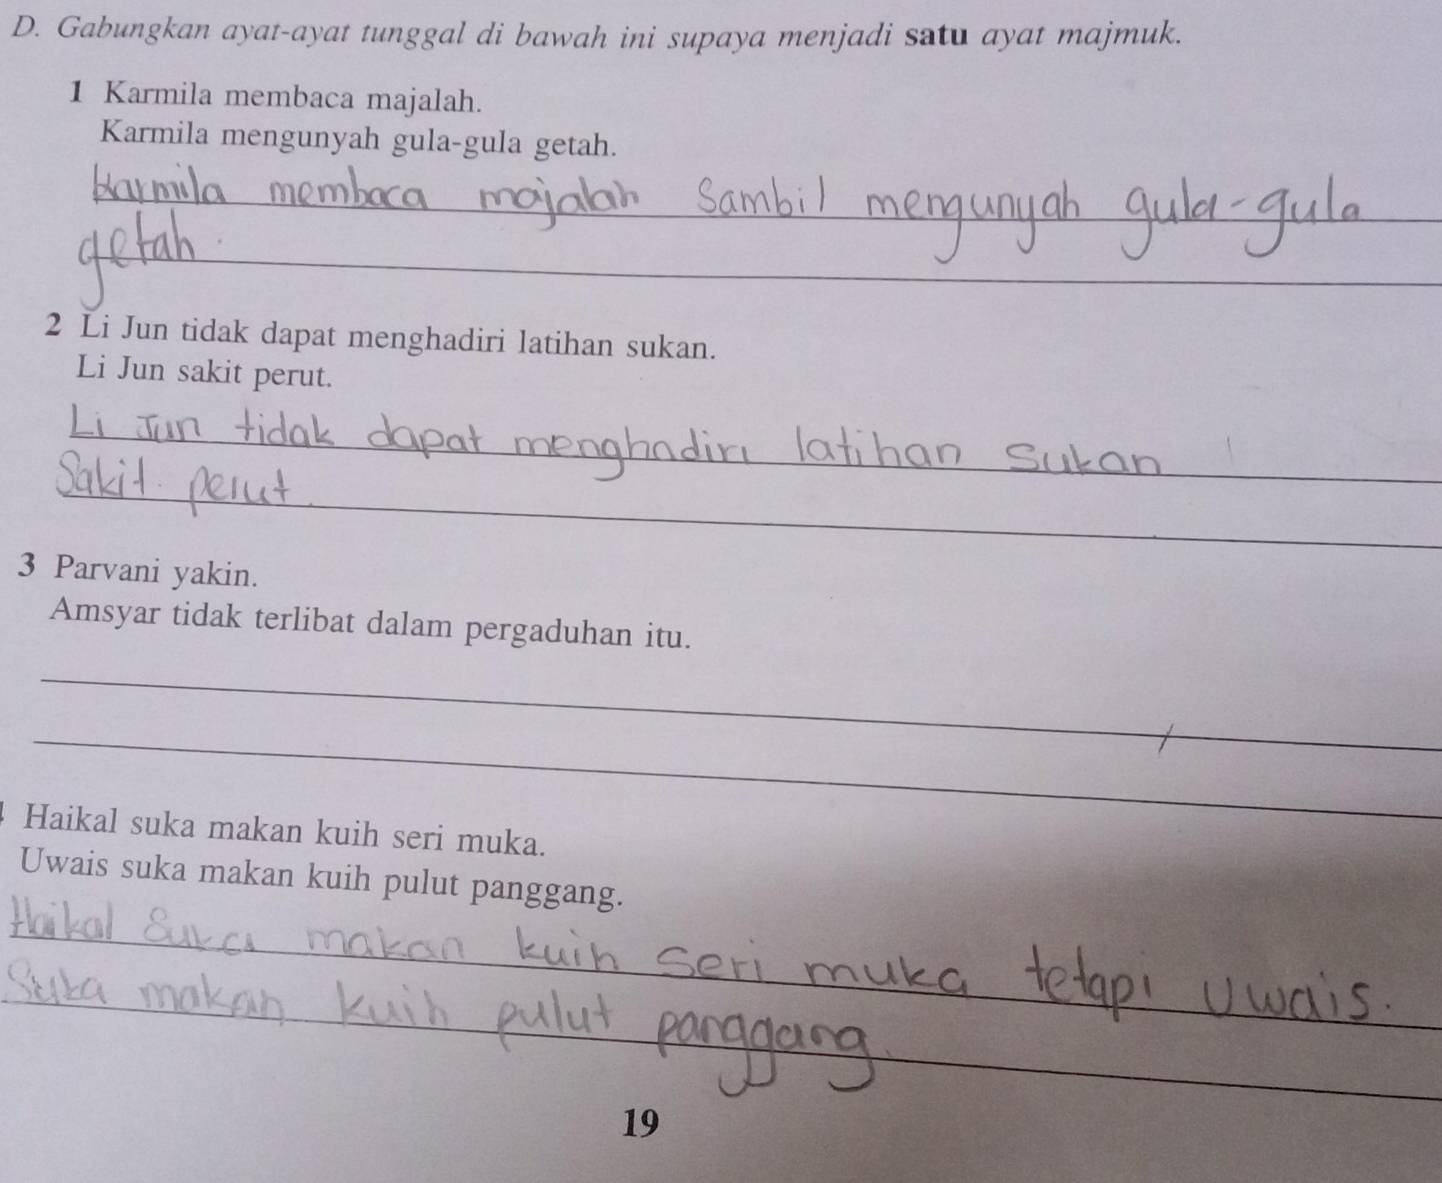 D. Gabungkan ayat-ayat tunggal di bawah ini supaya menjadi satu ayat majmuk.
1 Karmila membaca majalah.
Karmila mengunyah gula-gula getah.
Karmila membaca majalah Sambil mengunyah gula-gula
getah.
2 Li Jun tidak dapat menghadiri latihan sukan.
Li Jun sakit perut.
Li Jun tidak dapat menghadiri latihan sukan
Sakit perut.
3 Parvani yakin.
Amsyar tidak terlibat dalam pergaduhan itu.
Haikal suka makan kuih seri muka.
Uwais suka makan kuih pulut panggang.
Haikal Suka makan kuih seri muka tetapi Uwais.
Suka makan kuih pulut panggang.
19